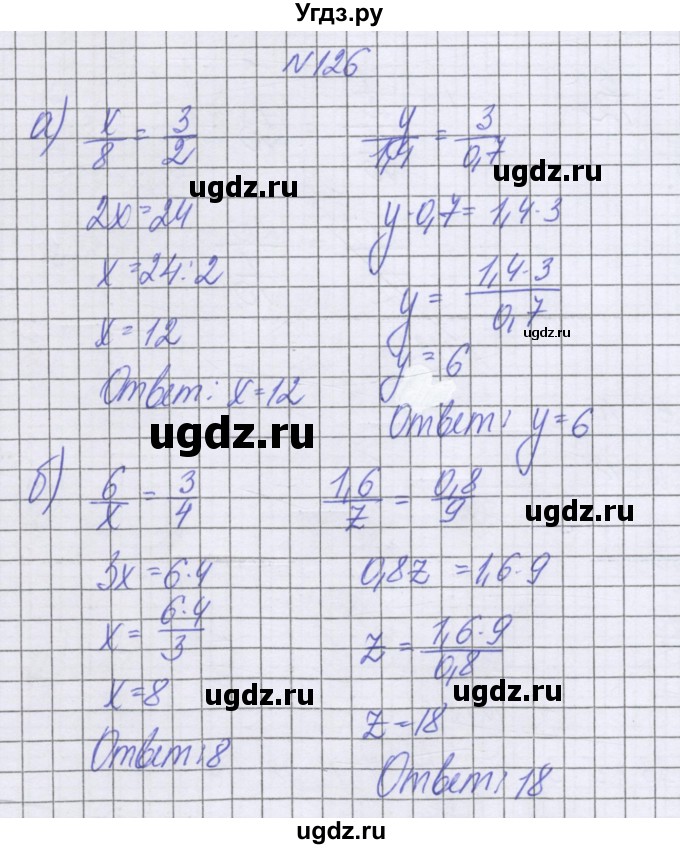 Угдз.ру
№126
а) x/8 = 3/2
ugdz.ru
2x=24
x=24:2
x=12
Ответ: x=12
ugdz.ru
y/1,4 = 3/0,7
ugdz.ru
y·0,7=1,4·3
y = 1,4·3/0,7
ugdz.ru
y=6
Ответ: y=6
б) 6/x = 3/4
3x=6·4
x= 6·4/3
x=8
ugdz.ru
Ответ:8
1,6/z = 0,8/9
ugdz.ru
0,8z =1,6·9
z= 1,6·9/0,8
ugdz.ru
z=18
Ответ: 18
ugdz.ru